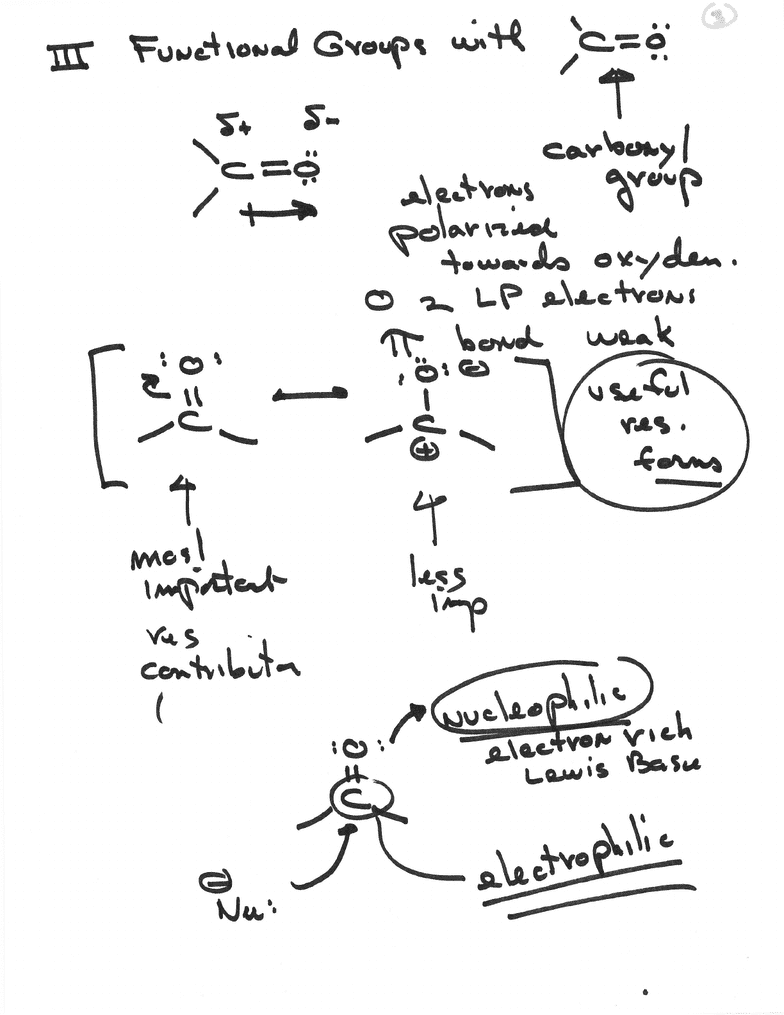 III Functional Groups with C=O
carbonyl
group
δ+ δ-
C=O
electrons
polarized
towards oxyden.
O 2 LP electrons
π bond weak
:O: :O: ⊖
C C
⊕
useful
res.
forms
most
important
res
contributor
less
imp
nucleophilic
electron rich
Lewis Base
:O:
C
electrophilic
⊖
Nu: